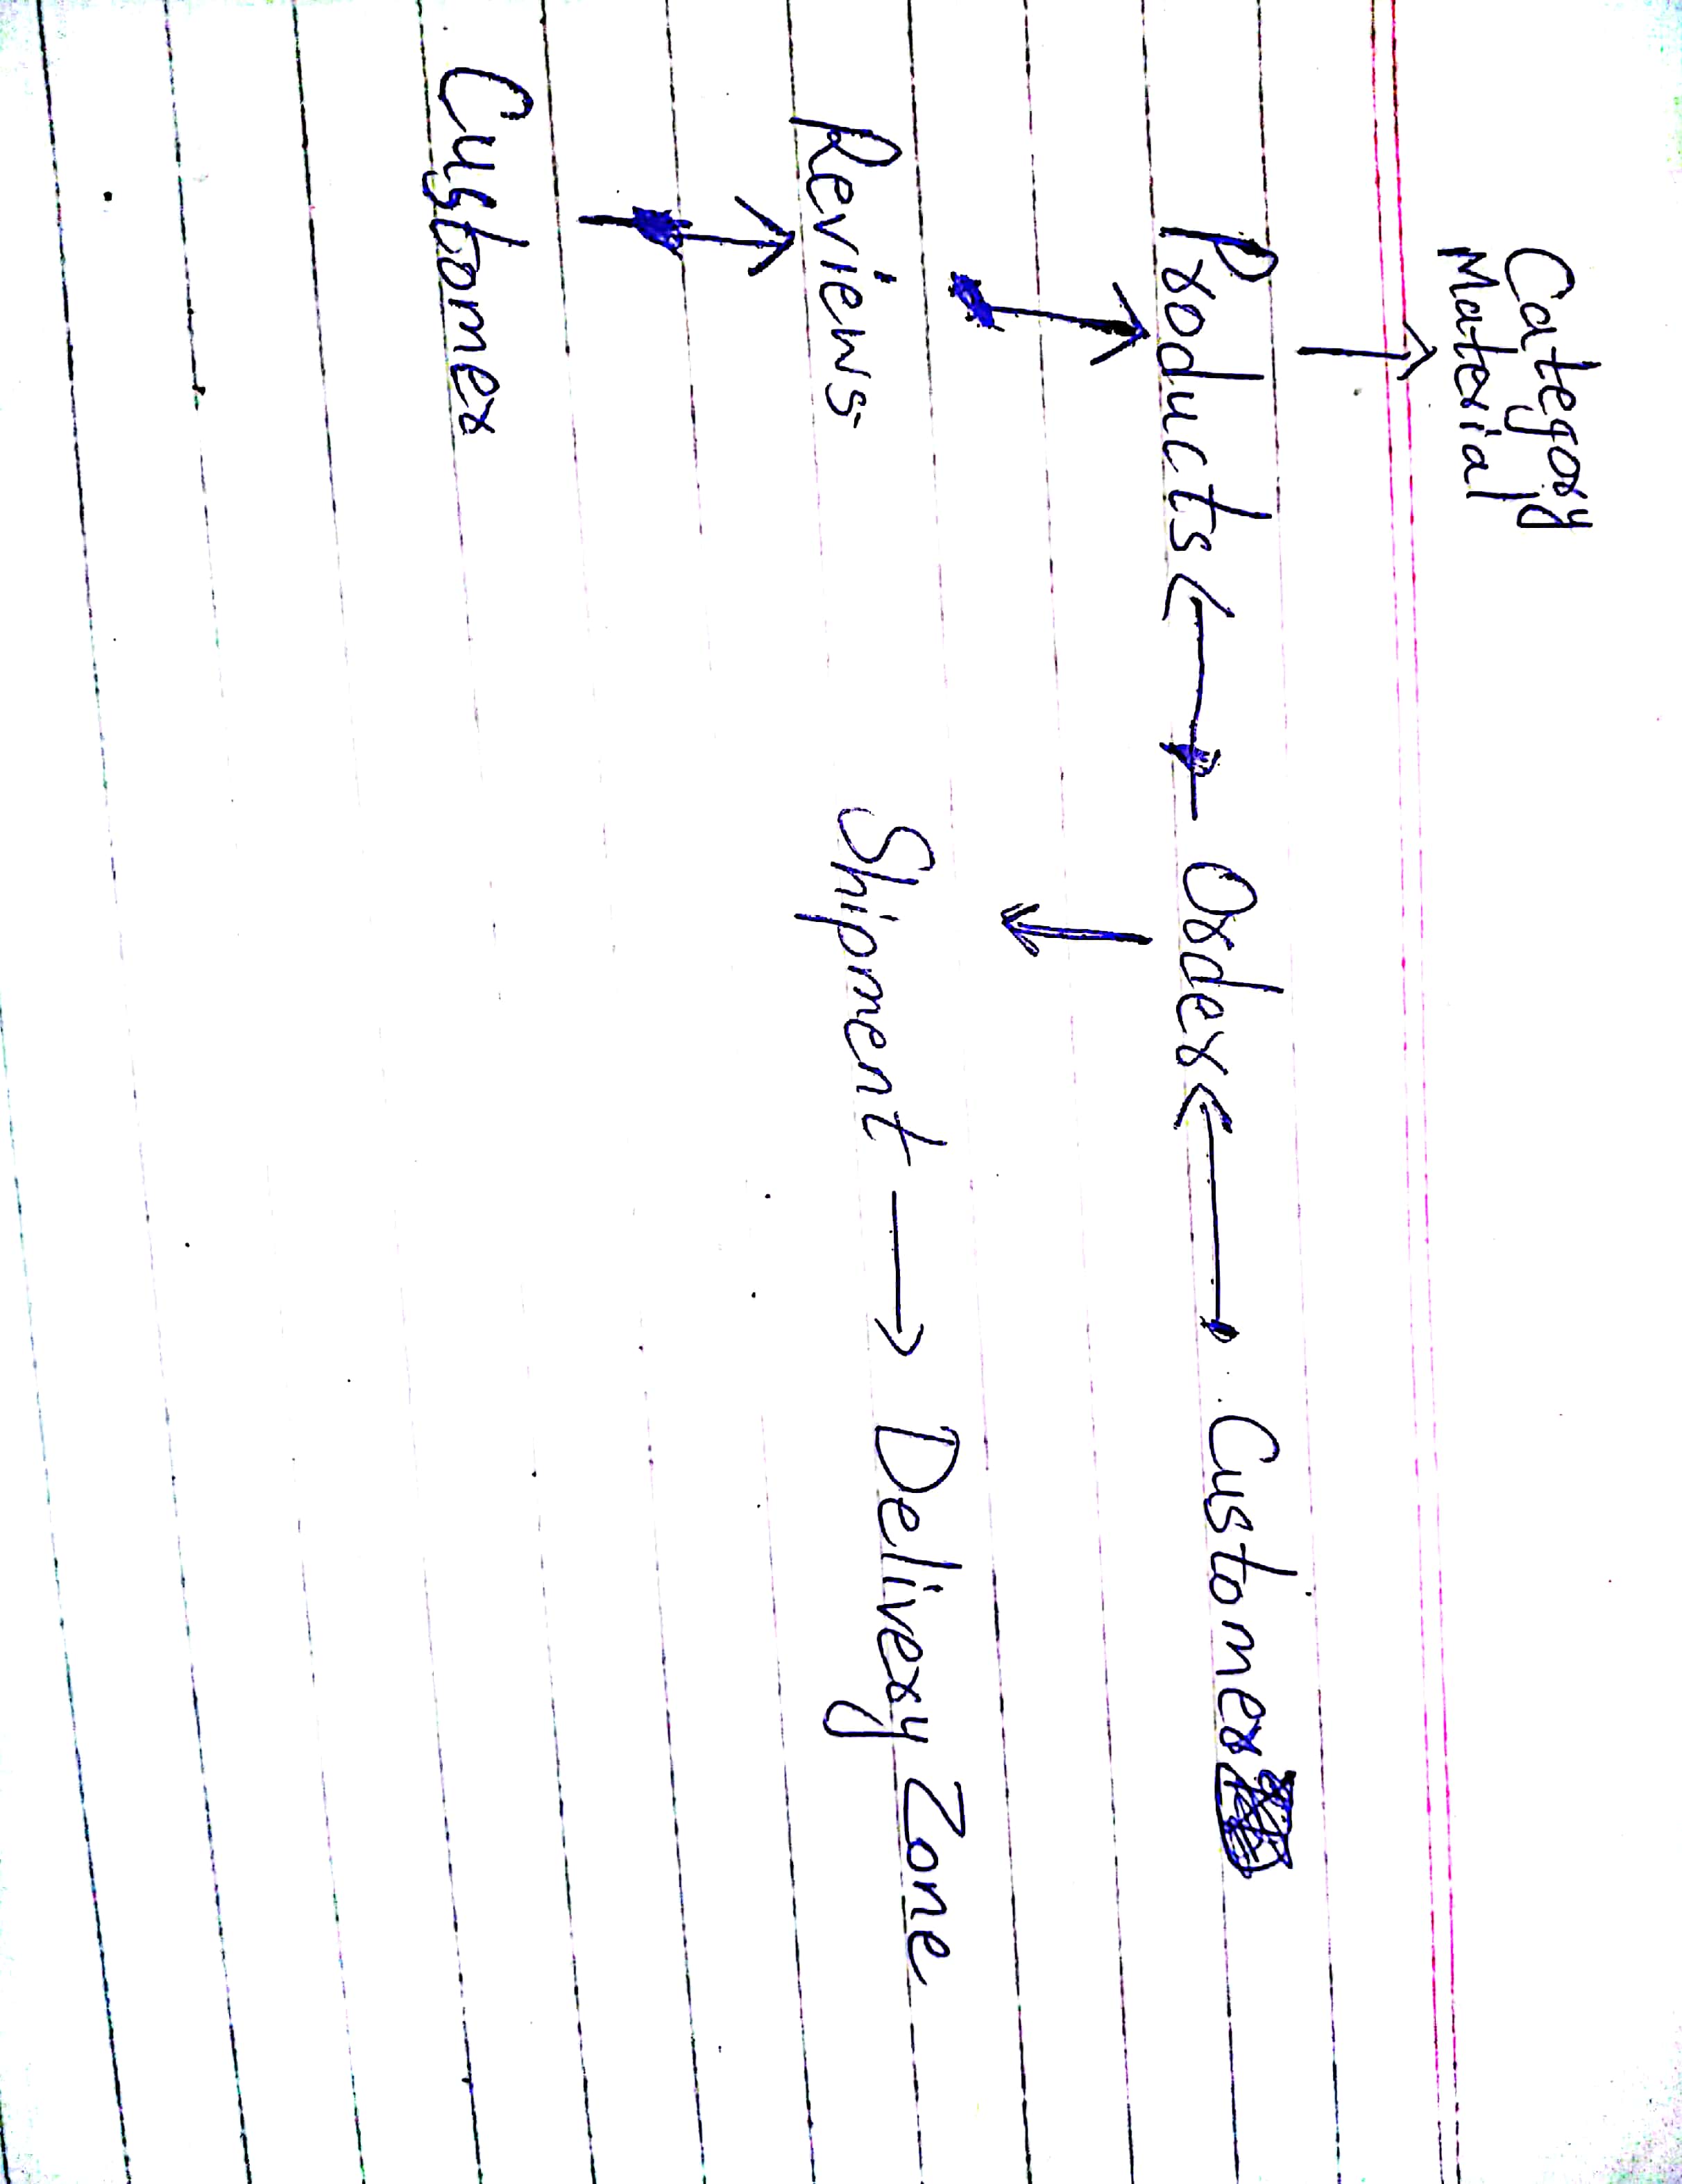 Category
Material
Products ← Order ← Customer
Reviews
Shipment → Delivery Zone
Customer